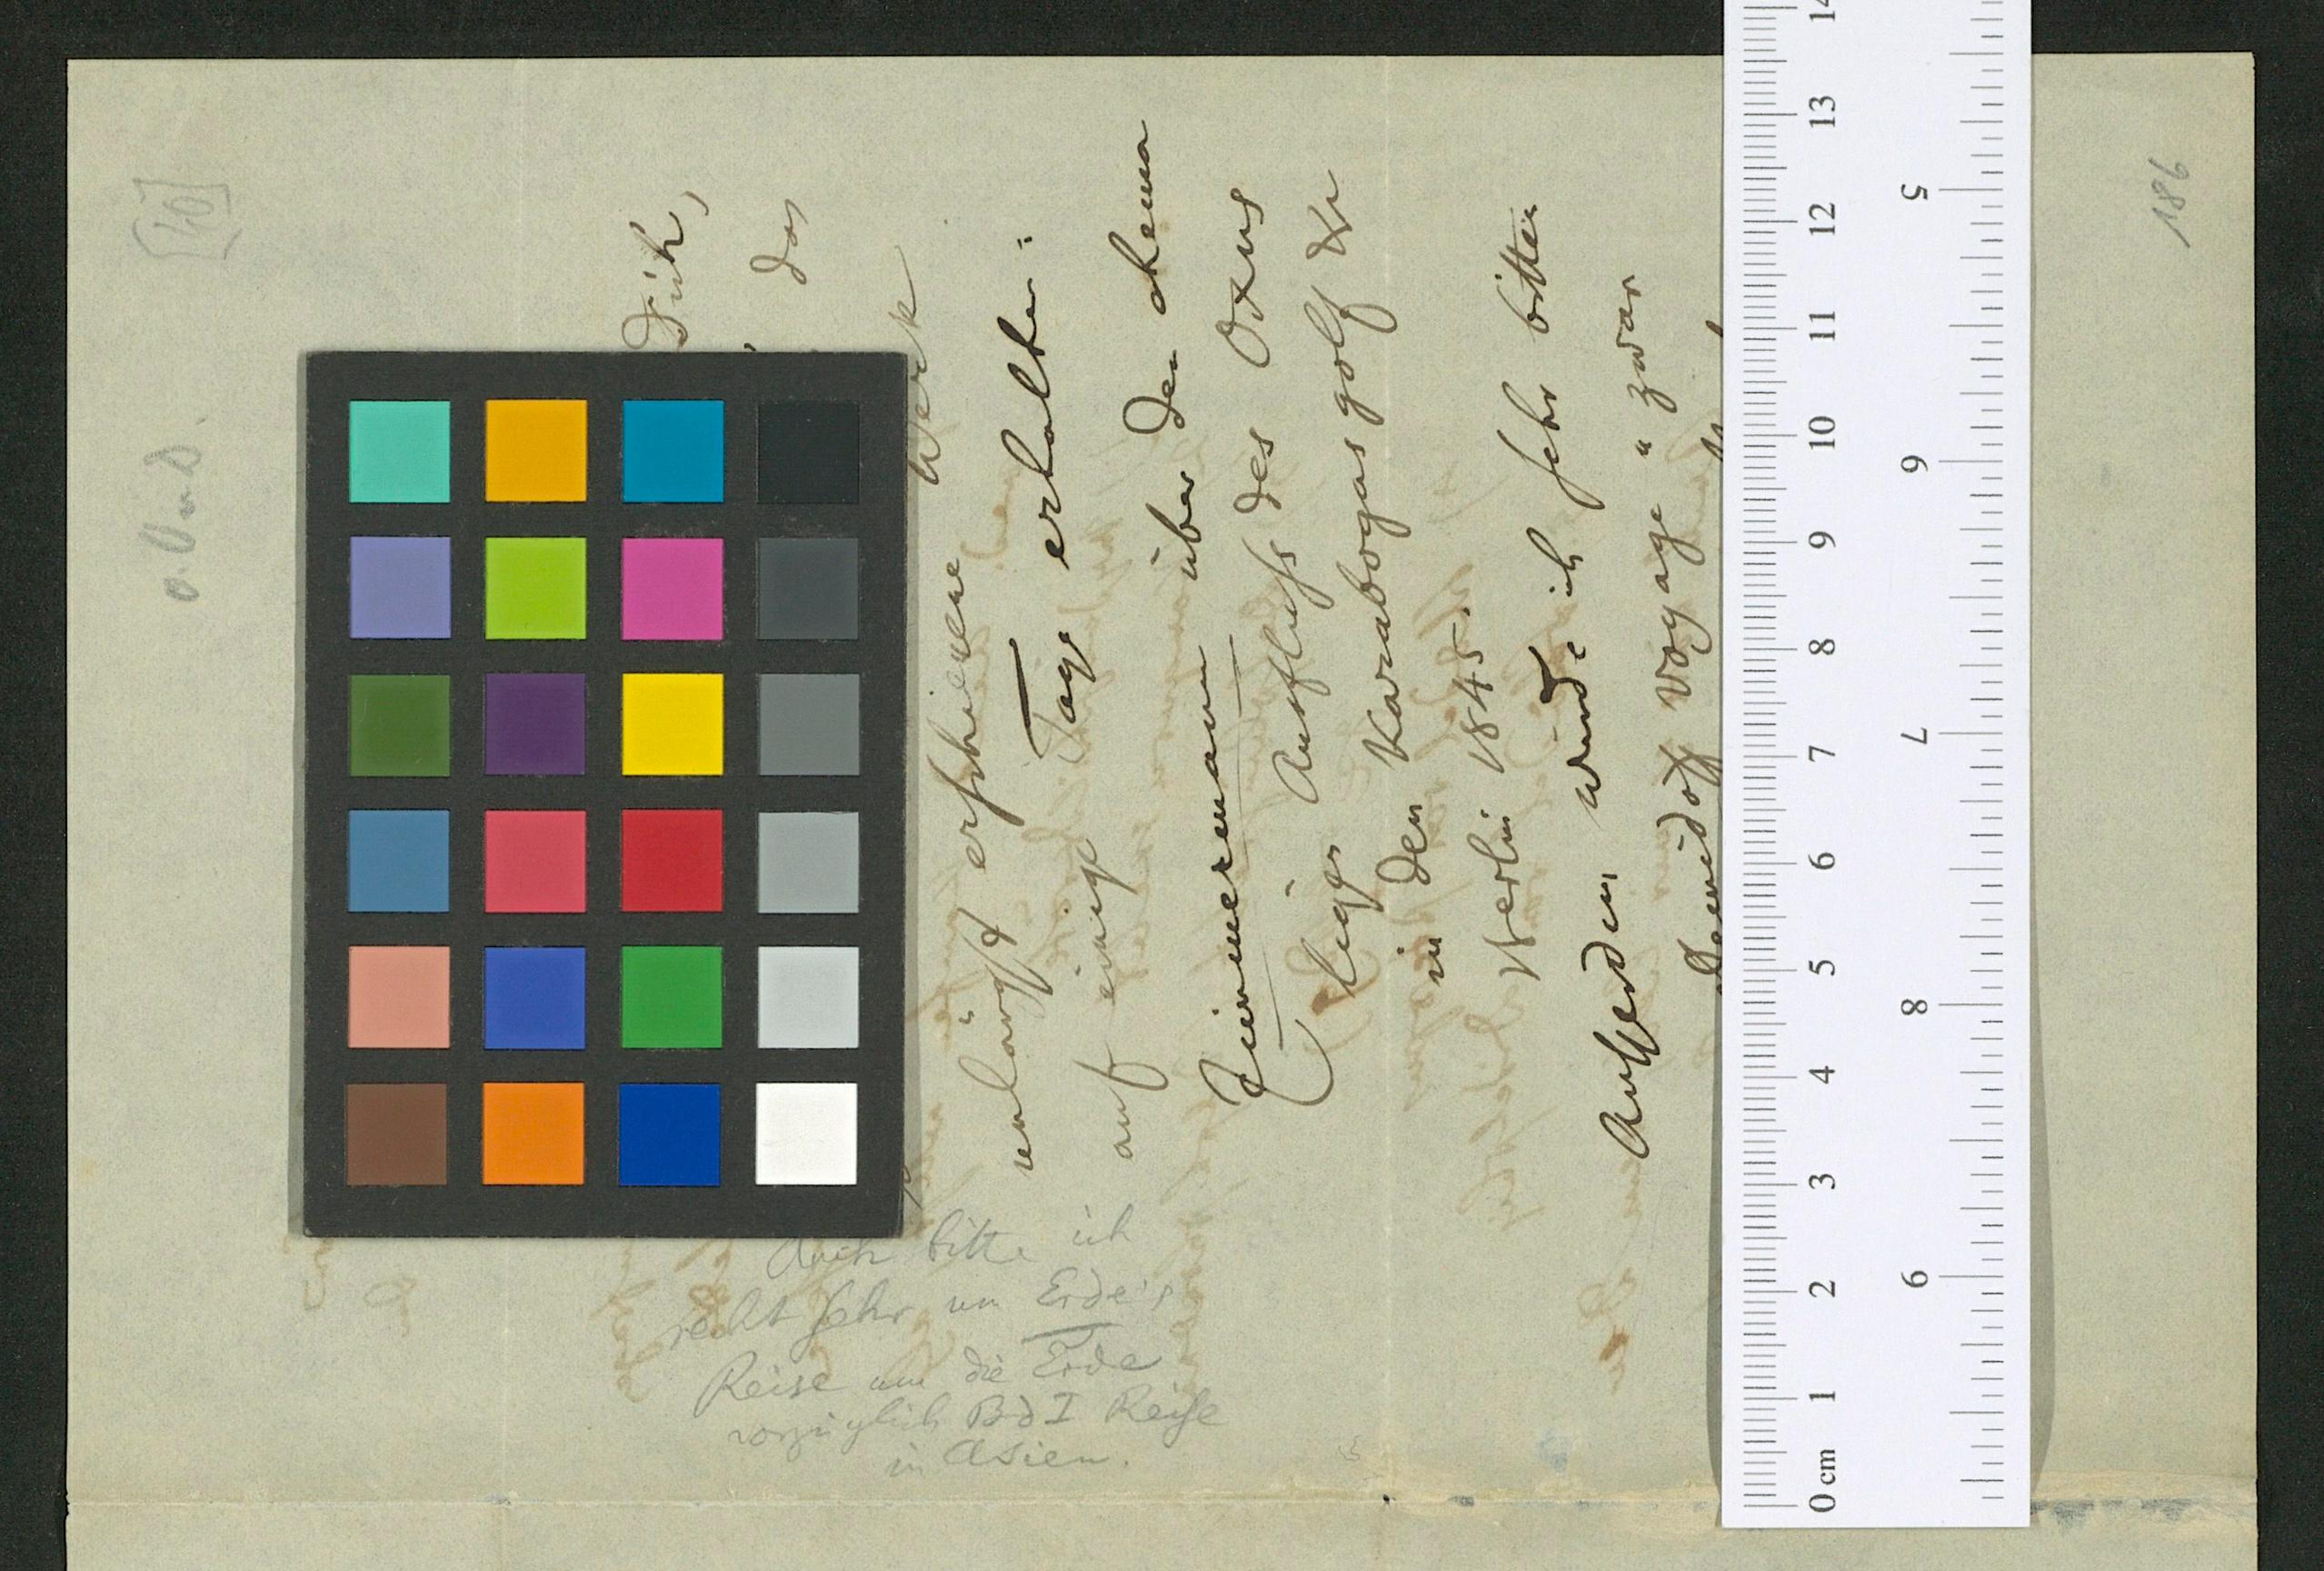 [40]
o. Uns.
186
Dich,
das
Werk
unlängst erschienene
auf einige Tage erhalten:
Zimmermann über den ehema
ligen Ausfluss des Oxus
in den Karabogas golf &c
Berlin 1845.
Ausserdem würde ich sehr bitten
voyage u zwar
Auch bitte ich
recht sehr um
Reise um die Erde
vorzüglich Bd I Reise
in Asien.
0 cm 1 2 3 4 5 6 7 8 9 10 11 12 13 14
5 6 7 8 9